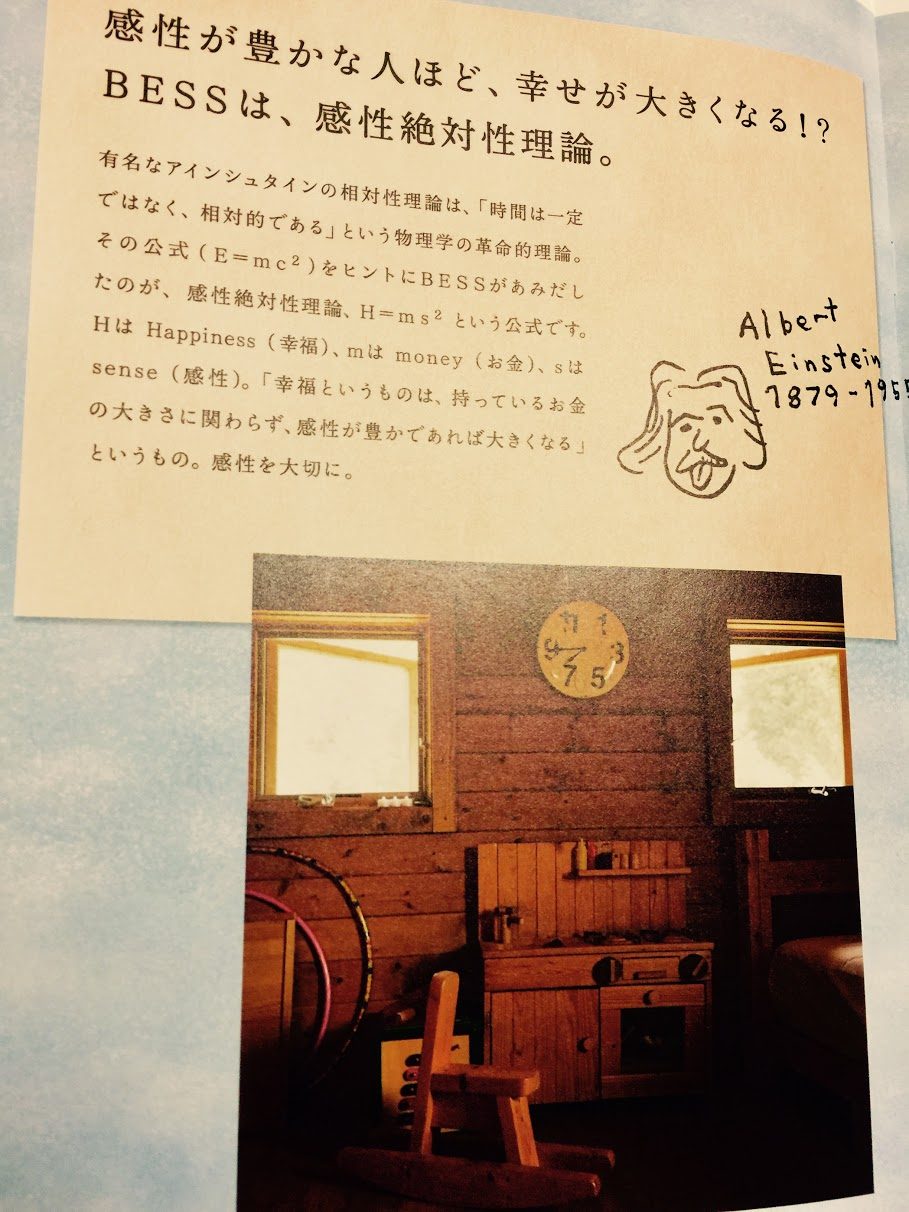 感性が豊かな人ほど、幸せが大きくなる!?
BESSは、感性絶対性理論。
有名なアインシュタインの相対性理論は、「時間は一定
ではなく、相対的である」という物理学の革命的理論。
その公式(E=mc²)をヒントにBESSがあみだし
たのが、感性絶対性理論、H=ms²という公式です。
HはHappiness(幸福)、mはmoney(お金)、sは
sense(感性)。「幸福というものは、持っているお金
の大きさに関わらず、感性が豊かであれば大きくなる」
というもの。感性を大切に。
Albert
Einstein
1879-1955
11 1
9 3
7 5